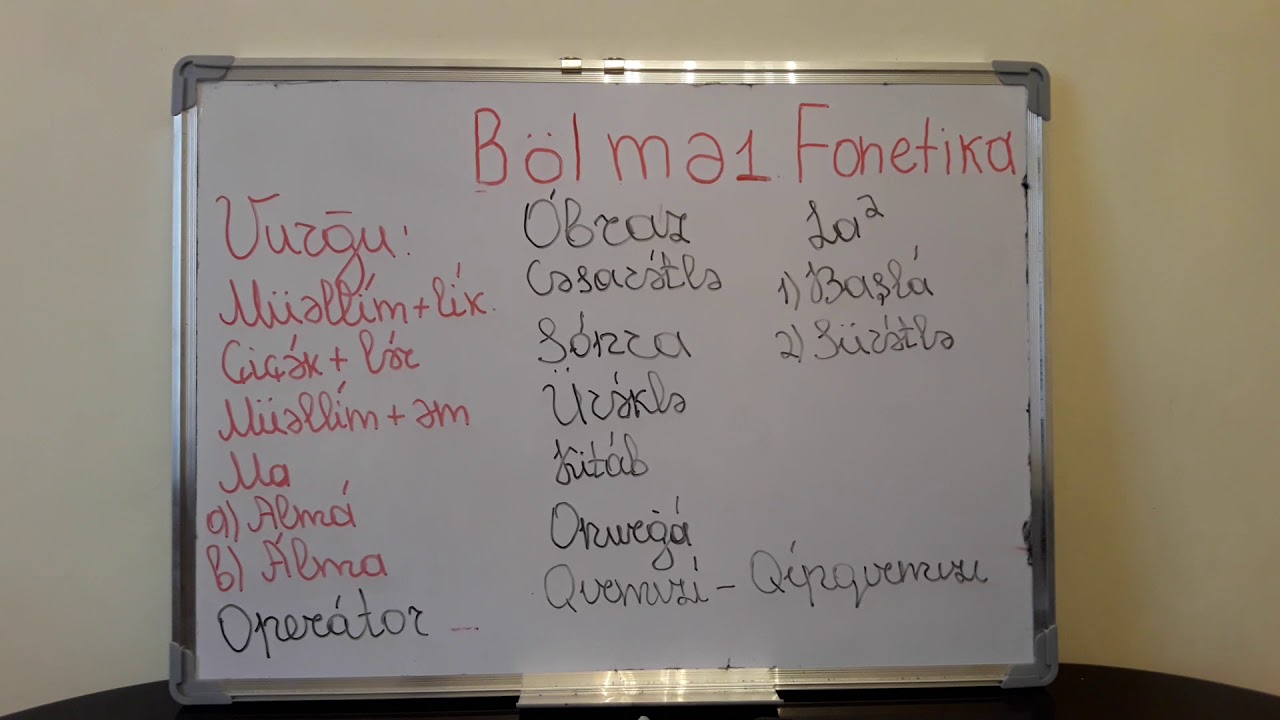 Bölmə1 Fonetika
Vurğu:
Müəllím+lík.
Çiçə́k + lə́r
Müəllím + əm
Ma
a) Almá
b) Álma
Operátor –
Óbraz
Cəsarə́tlə
Sónra
Ürə́klə
Kitáb
Onurğá
Qırmızı́ – Qı́pqırmızı
La²
1) Başlá
2) Sürə́tlə